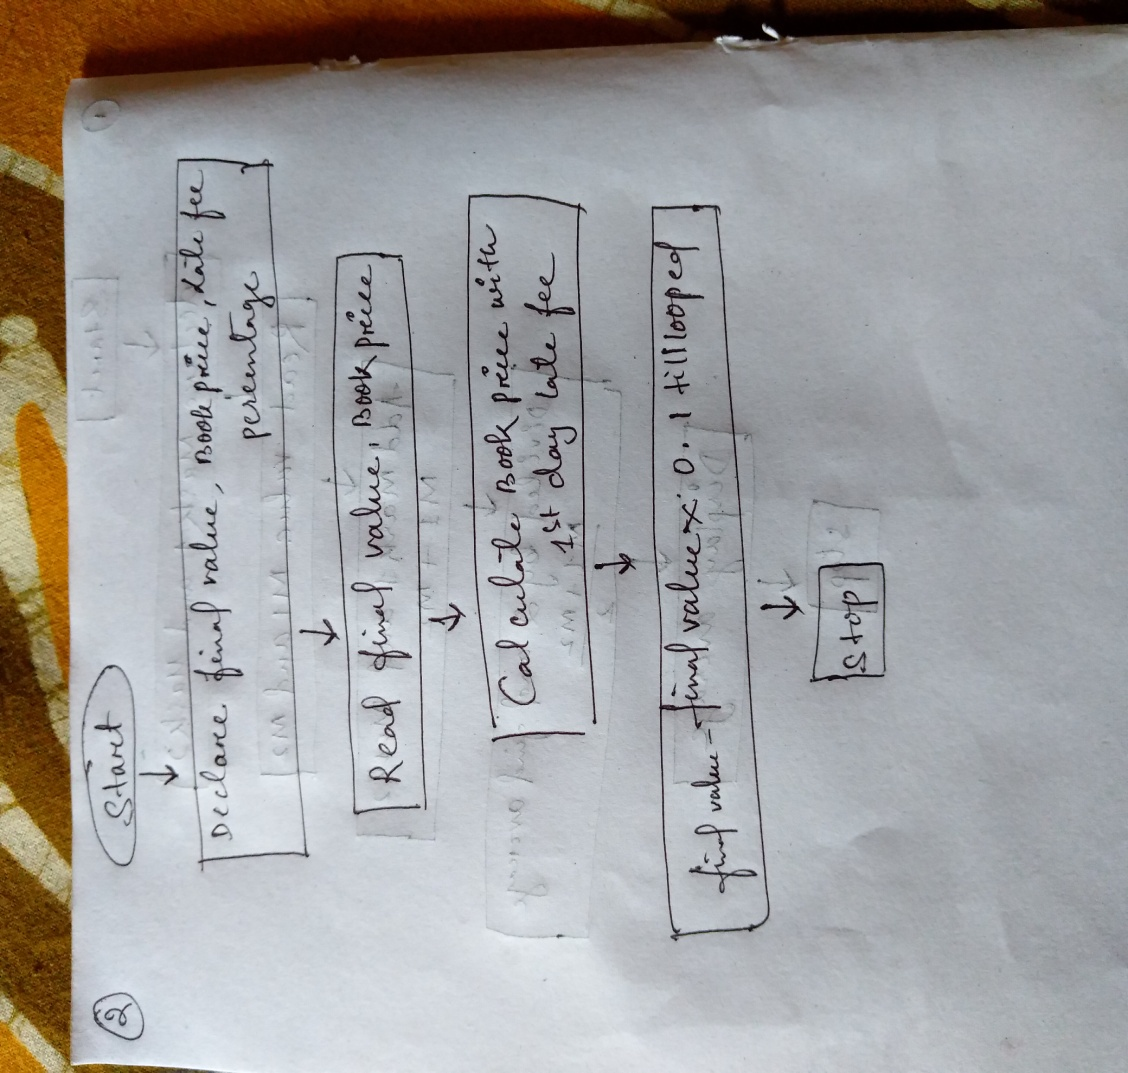 2
Start
Declare final value, Book price, Late fee
percentage
Read final value, Book price
Calculate Book price with
1st day late fee
final value - final value × 0.1 till looped
Stop